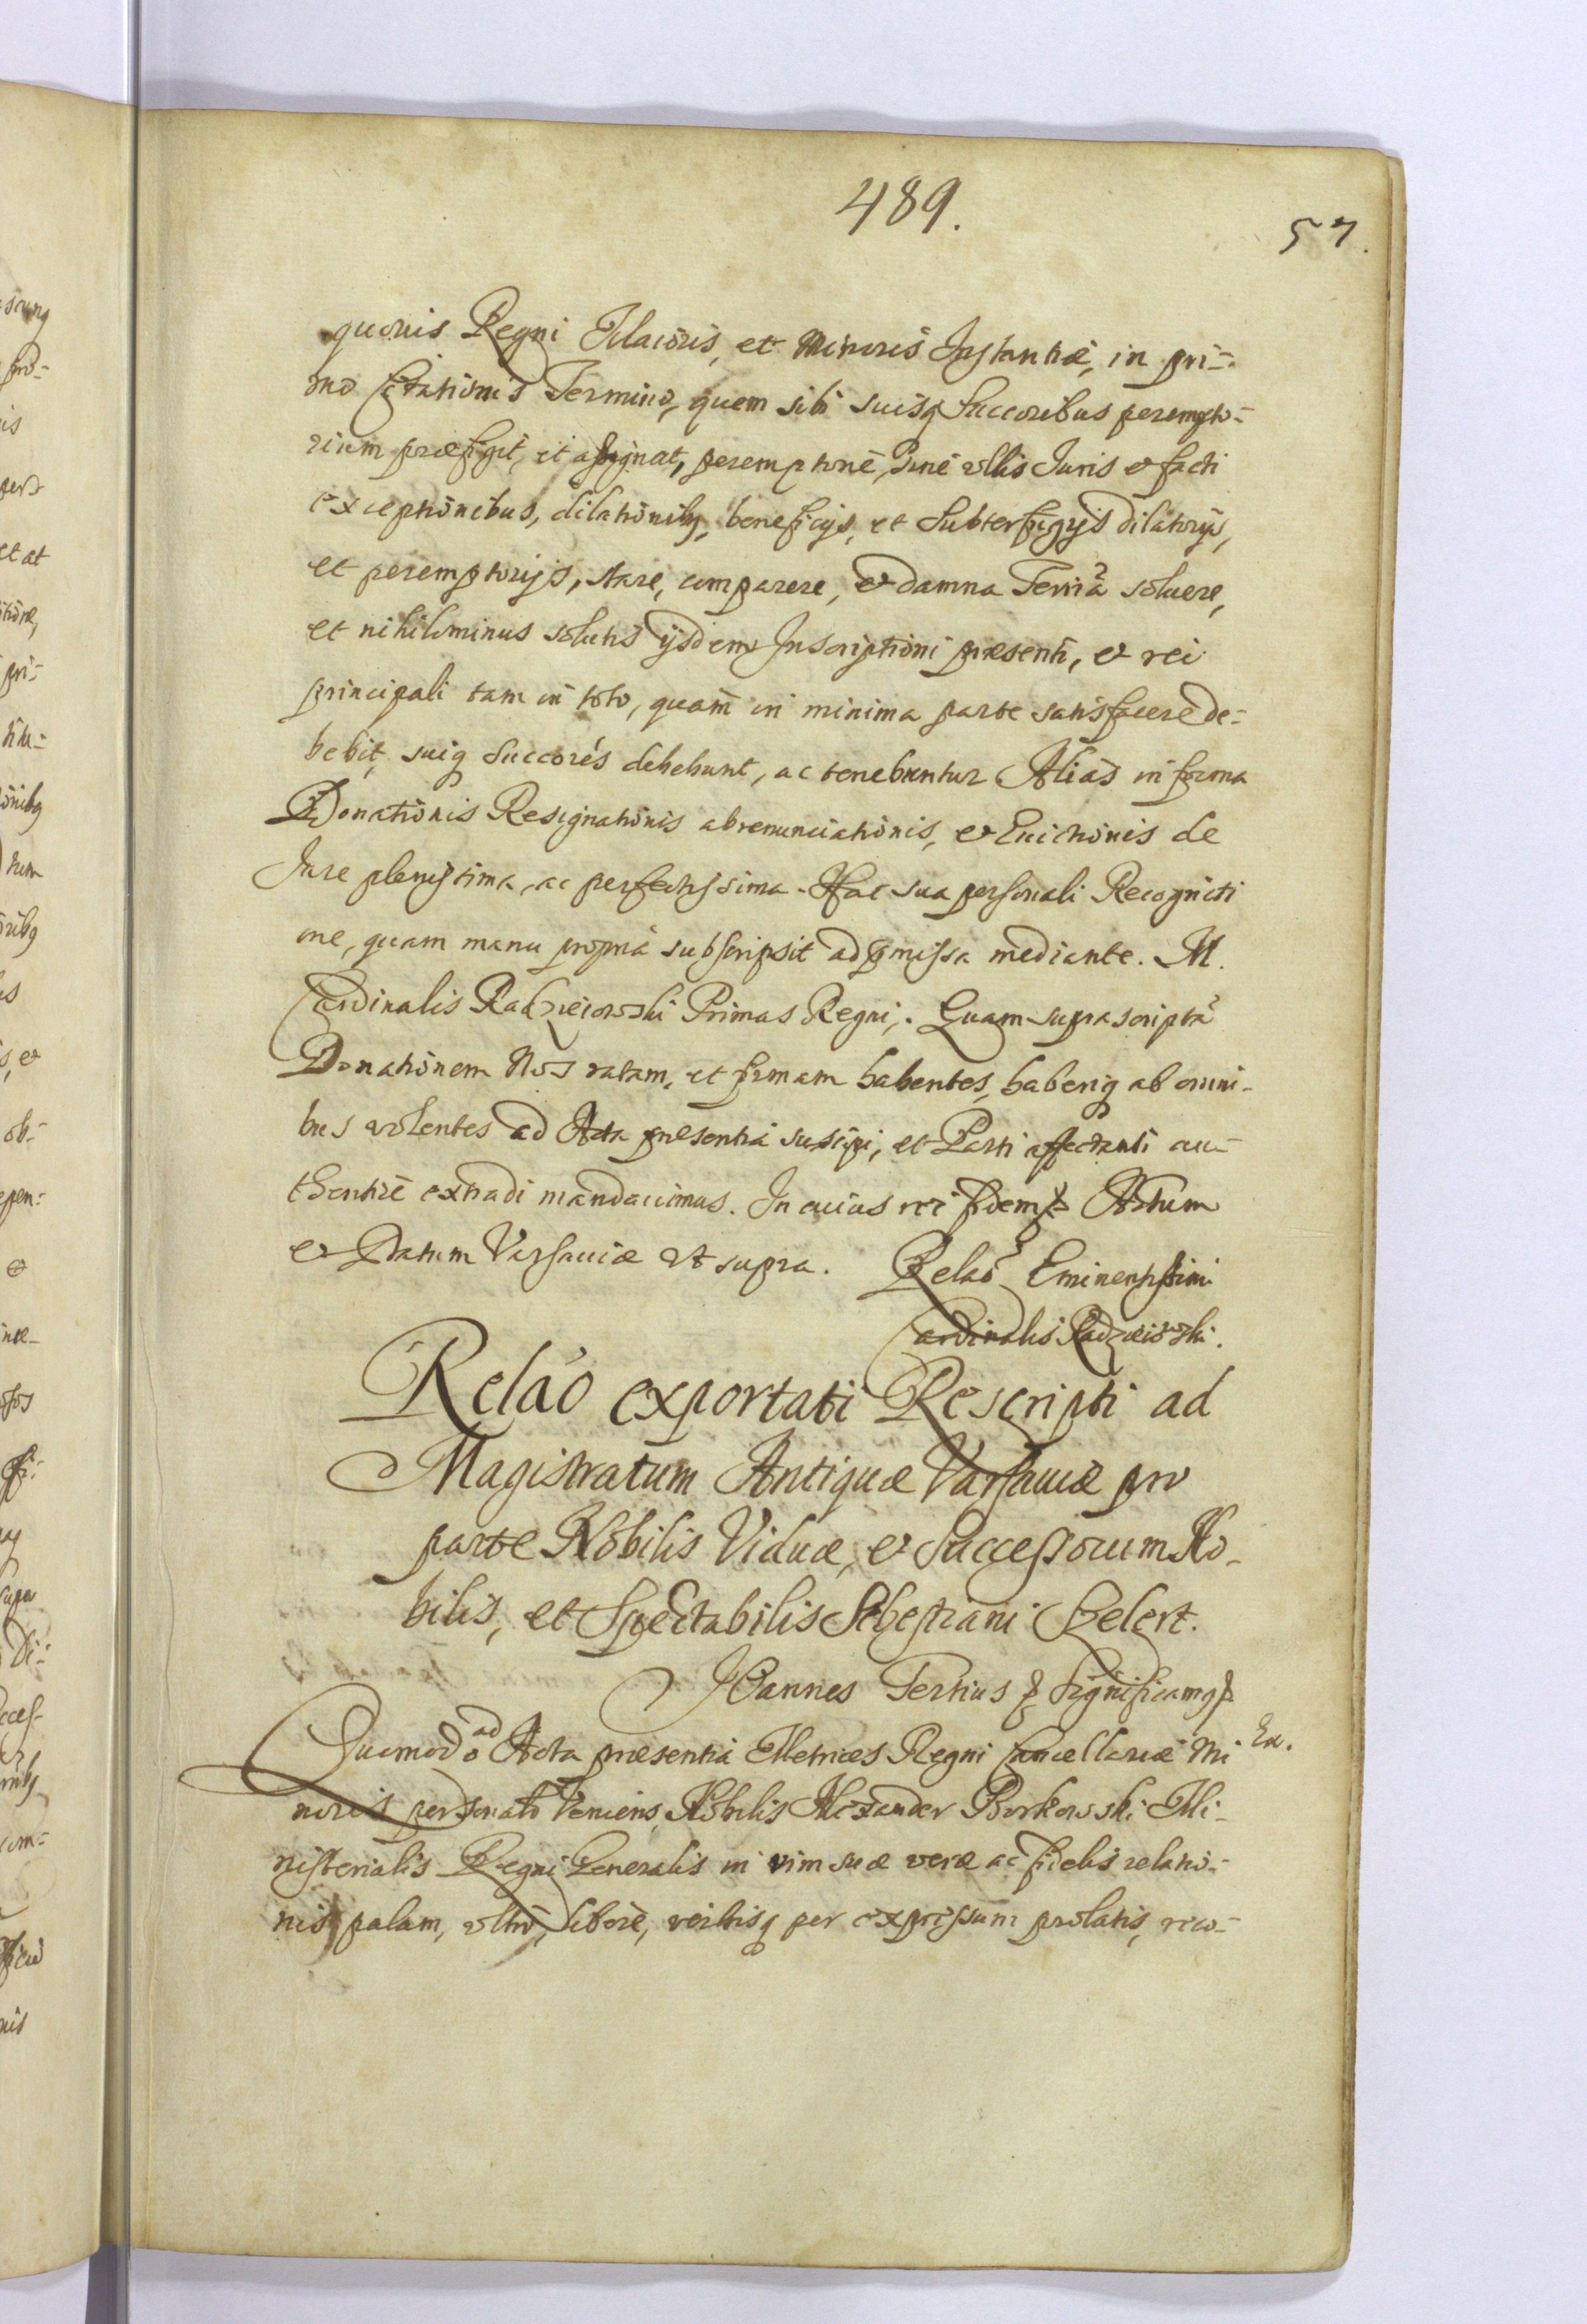 489.
57.
quovis Regni Maioris, et Minoris Instantiæ, in pri=
mo Citationis Termino, quem sibi suisq Succoribus perempto=
rium præfigit, et assignat, peremptorie, Sine ullis Juris et facti
exceptionibus, dilationibq, beneficijs, et Subterfugijs dilatorijs,
et peremptorijs, stare, comparere, et damna Terria soluere,
et nihilominus solutis ijsdem Inscriptioni præsenti, et rei
principali tam in toto, quam in minima parte satisfacere de=
bebit, suiq Succores debebunt, ac tenebuntur Alias in forma
Donationis Resignationis abrenunciationis, et Euictionis de
Jure plenissima, ac perfectissima. Hac sua personali Recogniti
one, quam manu propria subscripsit ad pmissa mediante. M.
Cardinalis Radzieiowski Primas Regni. Quam suprascriptã
Donationem Nos ratam, et firmam habentes, haberiq ab omni=
bus volentes ad Acta præsentia suscipi, et Parti affectanti au=
thentice extradi mandauimus. In cuius rei fidem Actum
et Datum Varsauiæ ut supra. Relaõ Eminentissimi
Cardinalis Radzieiowski.
Relaõ exportati Rescripti ad
Magistratum Antiquæ Varsauiæ pro
parte Nobilis Viduæ, et Successorum No=
bilis, et Spectabilis Sebestiani Szelert.
JOannes Tertius Significamq
Quomodo ad Acta præsentia Metrices Regni Cancellariæ Mi
Ex.
noris personalr Veniens, Nobilis Alexander Borkowski Mi=
nisterialis Regni Generalis in vim suæ veræ ac fidelis relatio=
nis palam, ultro, libere, verbisq per expressum prolatis, reco=